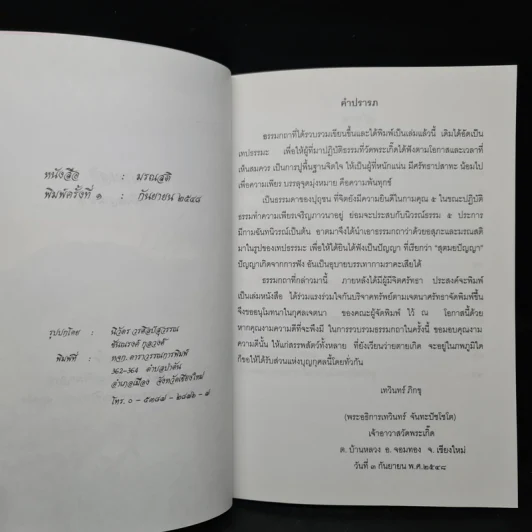 หนังสือ : มรณสติ
พิมพ์ครั้งที่ ๑ : กันยายน ๒๕๔๘
รูปปกโดย :
พิมพ์ที่ : หจก. ดาราวรรณการพิมพ์
362-364 ตำบลป่าตัน
อำเภอเมือง จังหวัดเชียงใหม่
คำปรารภ
ธรรมกถาที่ได้รวบรวมเขียนขึ้นและได้พิมพ์เป็นเล่มแล้วนี้ เดิมได้อัดเป็น
เทปธรรมะ เพื่อให้ผู้ที่มาปฏิบัติธรรมที่วัดพระเกิ๊ดได้ฟังตามโอกาสและเวลาที่
เห็นสมควร เป็นการปูพื้นฐานจิตใจ ให้เป็นผู้ที่หนักแน่น มีศรัทธาปสาทะ น้อมไป
เพื่อความเพียร บรรลุจุดมุ่งหมาย คือความพ้นทุกข์
เป็นธรรมดาของปุถุชน ที่จิตยังมีความยินดีในกามคุณ ๕ ในขณะปฏิบัติ
ธรรมทำความเพียรเจริญภาวนาอยู่ ย่อมจะประสบกับนิวรณ์ธรรม ๕ ประการ
มีกามฉันทนิวรณ์เป็นต้น อาตมาจึงได้นำเอาธรรมกถาว่าด้วยอสุภะและมรณสติ
มาในรูปของเทปธรรมะ เพื่อให้ได้ยินได้ฟังเป็นปัญญา ที่เรียกว่า "สุตมยปัญญา"
ปัญญาเกิดจากการฟัง อันเป็นอุบายบรรเทากามราคะเสียได้
ธรรมกถาที่กล่าวมานี้ ภายหลังได้มีผู้มีจิตศรัทธา ประสงค์จะพิมพ์
เป็นเล่มหนังสือ ได้ร่วมแรงร่วมใจกันบริจาคทรัพย์ตามเจตนาศรัทธาจัดพิมพ์ขึ้น
จึงขออนุโมทนาในกุศลเจตนา ของคณะผู้จัดพิมพ์ ไว้ ณ โอกาสนี้ด้วย
หากคุณงามความดีที่จะพึงมี ในการรวบรวมธรรมกถาในครั้งนี้ ขอมอบคุณงาม
ความดีนั้น ให้แก่สรรพสัตว์ทั้งหลาย ที่ยังเวียนว่ายตายเกิด จะอยู่ในภพภูมิใด
ก็ขอให้ได้รับส่วนแห่งบุญกุศลนี้โดยทั่วกัน
เทวินทร์ ภิกขุ
(พระอธิการเทวินทร์ จันทะปัชโชโต)
เจ้าอาวาสวัดพระเกิ๊ด
ต. บ้านหลวง อ. จอมทอง จ. เชียงใหม่
วันที่ ๓ กันยายน พ.ศ.๒๕๔๘